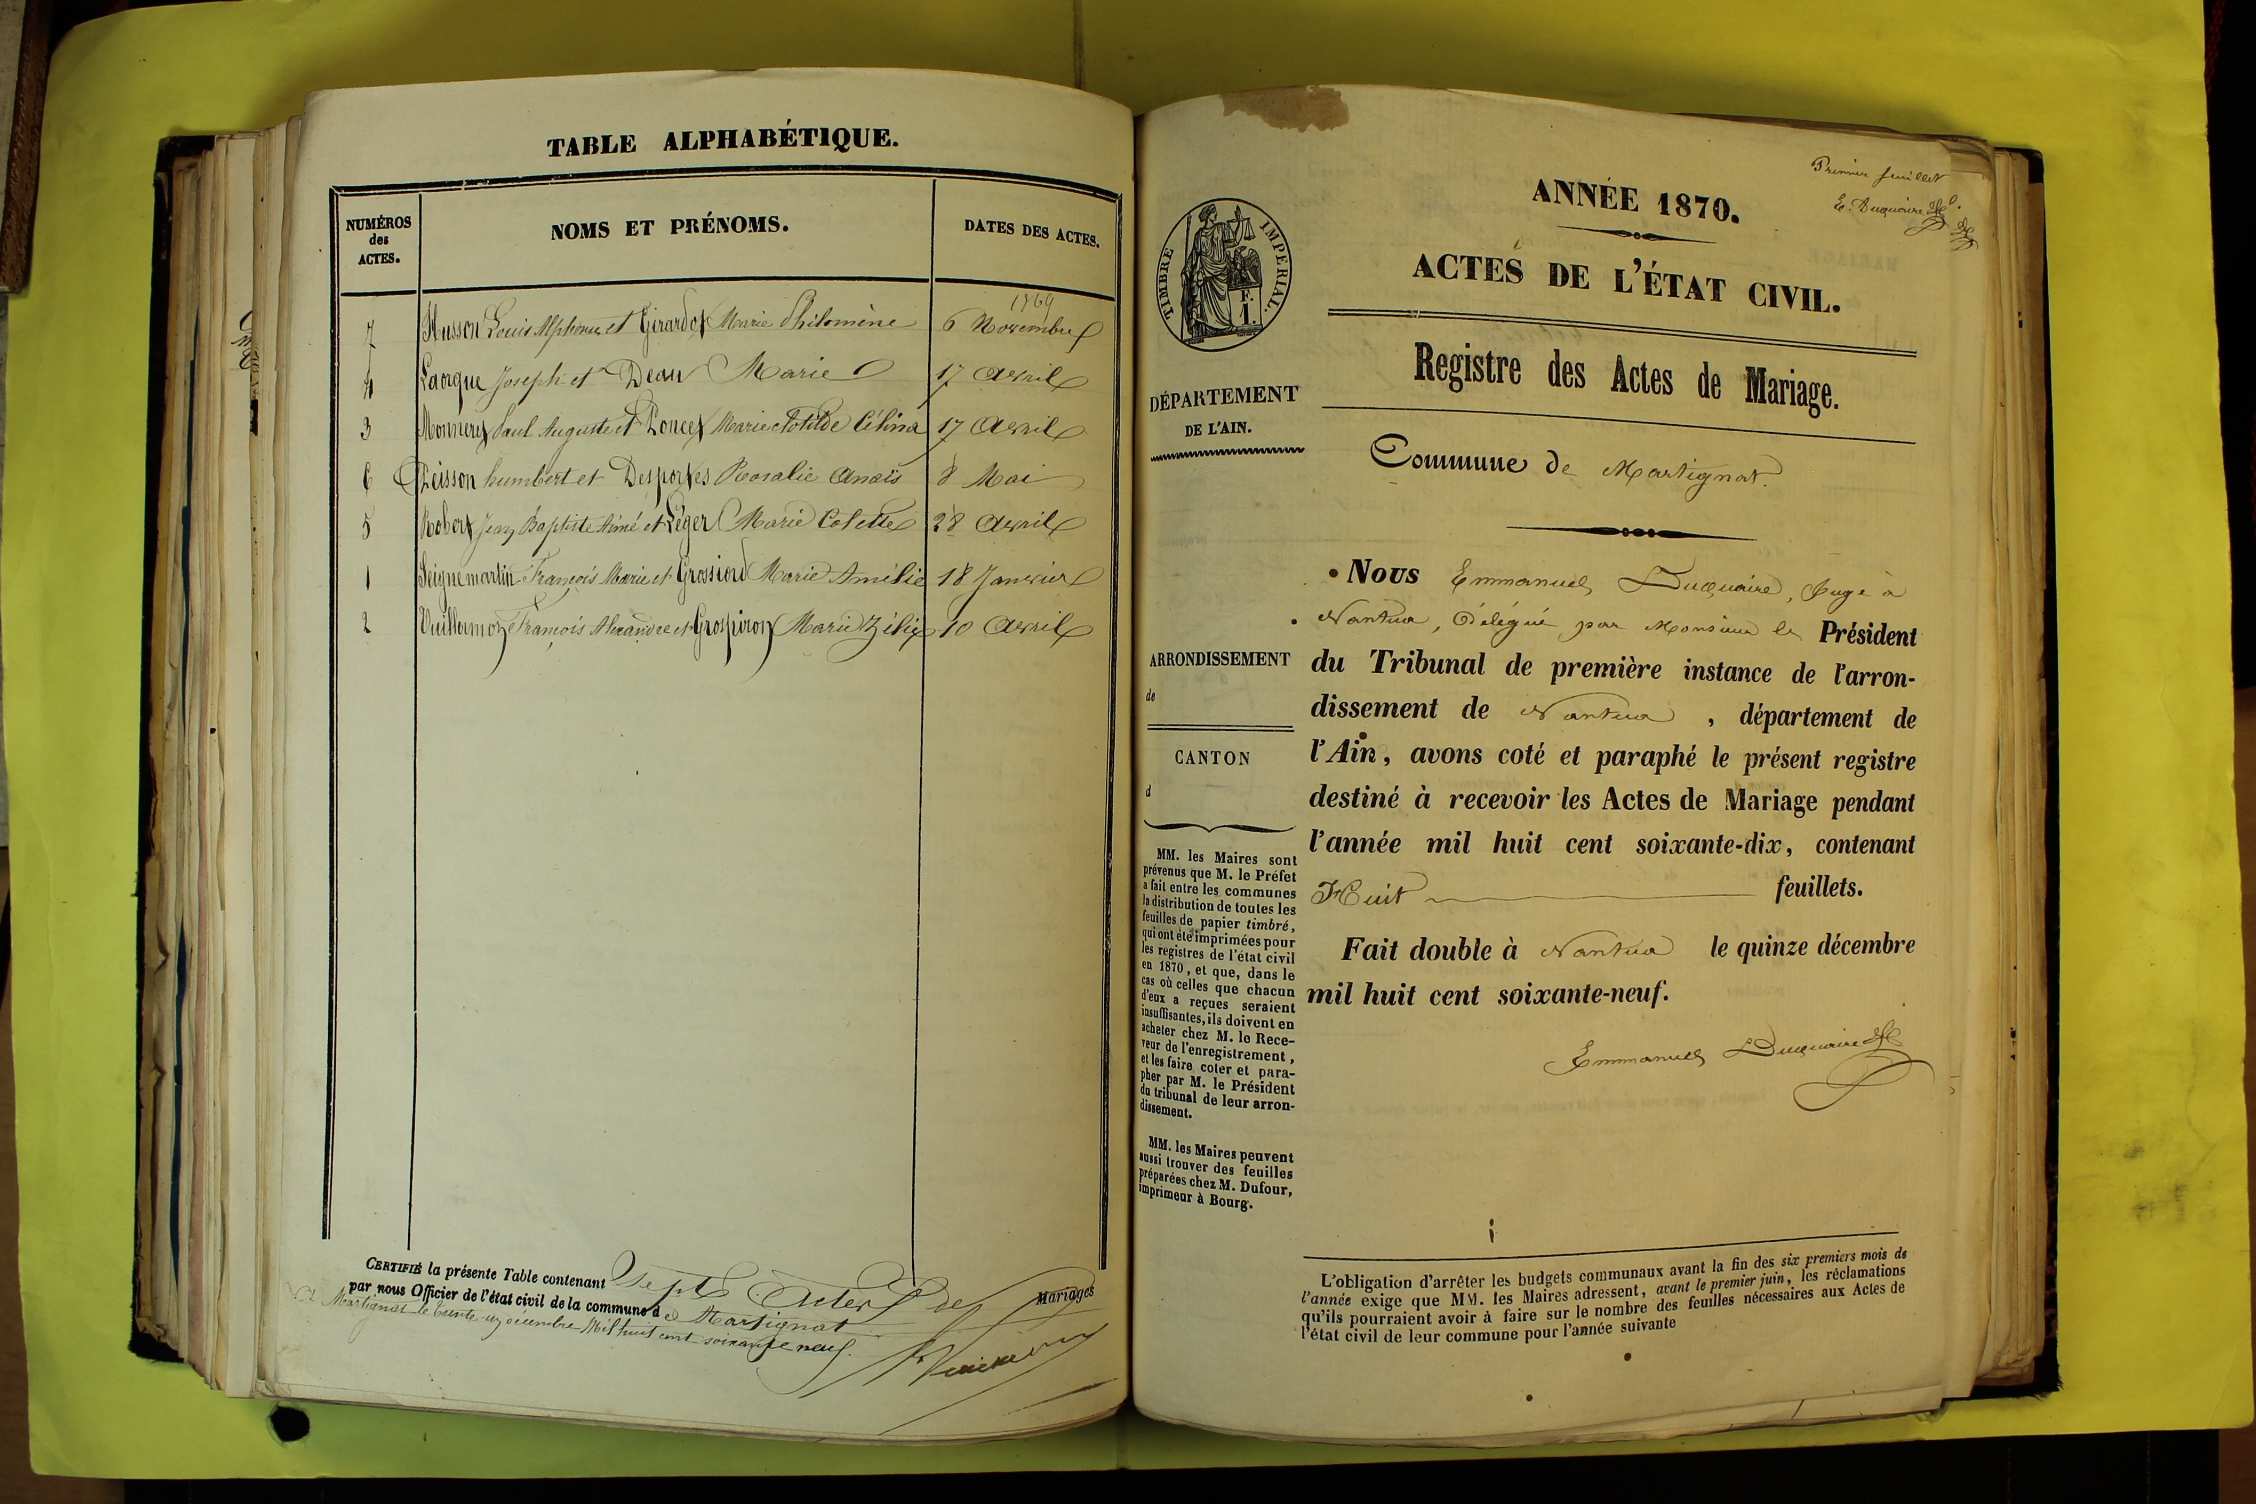 TABLE ALPHABÉTIQUE.
NUMÉROS
des
ACTES.
NOMS ET PRÉNOMS.
DATES DES ACTES.
1869
7 Husson Louis Alphonse et Girardot Marie Philomène 6 Novembre
4 Lacroque Joseph et Dean Marie 17 Avril
3 Monneret Paul Auguste et Poncet Marie Clotilde Célina 17 Avril
6 Peisson humbert et Desportes Rosalie Anaïs 8 Mai
5 Robert Jean Baptiste Aimé et Léger Marie Colette 28 Avril
1 Seignemartin François Marie et Grossiord Marie Amélie 18 Janvier
2 Vuillermoz François Alexandre et Grospiron Marie Zélie 10 Avril
CERTIFIÉ la présente Table contenant Sept Actes de Mariages
par nous Officier de l'état civil de la commune de Martignat
A Martignat le trente un décembre Mil huit cent soixante neuf.
Premier feuillet
E. Duquaire
ANNÉE 1870.
ACTES DE L'ÉTAT CIVIL.
Registre des Actes de Mariage.
TIMBRE IMPERIAL.
F.
1.
DÉPARTEMENT
DE L'AIN.
ARRONDISSEMENT
de
CANTON
d
MM. les Maires sont
prévenus que M. le Préfet
a fait entre les communes
la distribution de toutes les
feuilles de papier timbré,
qui ont été imprimées pour
les registres de l'état civil
en 1870, et que, dans le
cas où celles que chacun
d'eux a reçues seraient
insuffisantes, ils doivent en
acheter chez M. le Rece-
veur de l'enregistrement,
et les faire coter et para-
pher par M. le Président
du tribunal de leur arron-
dissement.
MM. les Maires peuvent
aussi trouver des feuilles
préparées chez M. Dufour,
imprimeur à Bourg.
Commune de Martignat.
Nous Emmanuel Duquaire, Juge à
Nantua, délégué par Monsieur le Président
du Tribunal de première instance de l'arron-
dissement de Nantua, département de
l'Ain, avons coté et paraphé le présent registre
destiné à recevoir les Actes de Mariage pendant
l'année mil huit cent soixante-dix, contenant
Huit feuillets.
Fait double à Nantua le quinze décembre
mil huit cent soixante-neuf.
Emmanuel Duquaire
L'obligation d'arrêter les budgets communaux avant la fin des six premiers mois de
l'année exige que MM. les Maires adressent, avant le premier juin, les réclamations
qu'ils pourraient avoir à faire sur le nombre des feuilles nécessaires aux Actes de
l'état civil de leur commune pour l'année suivante